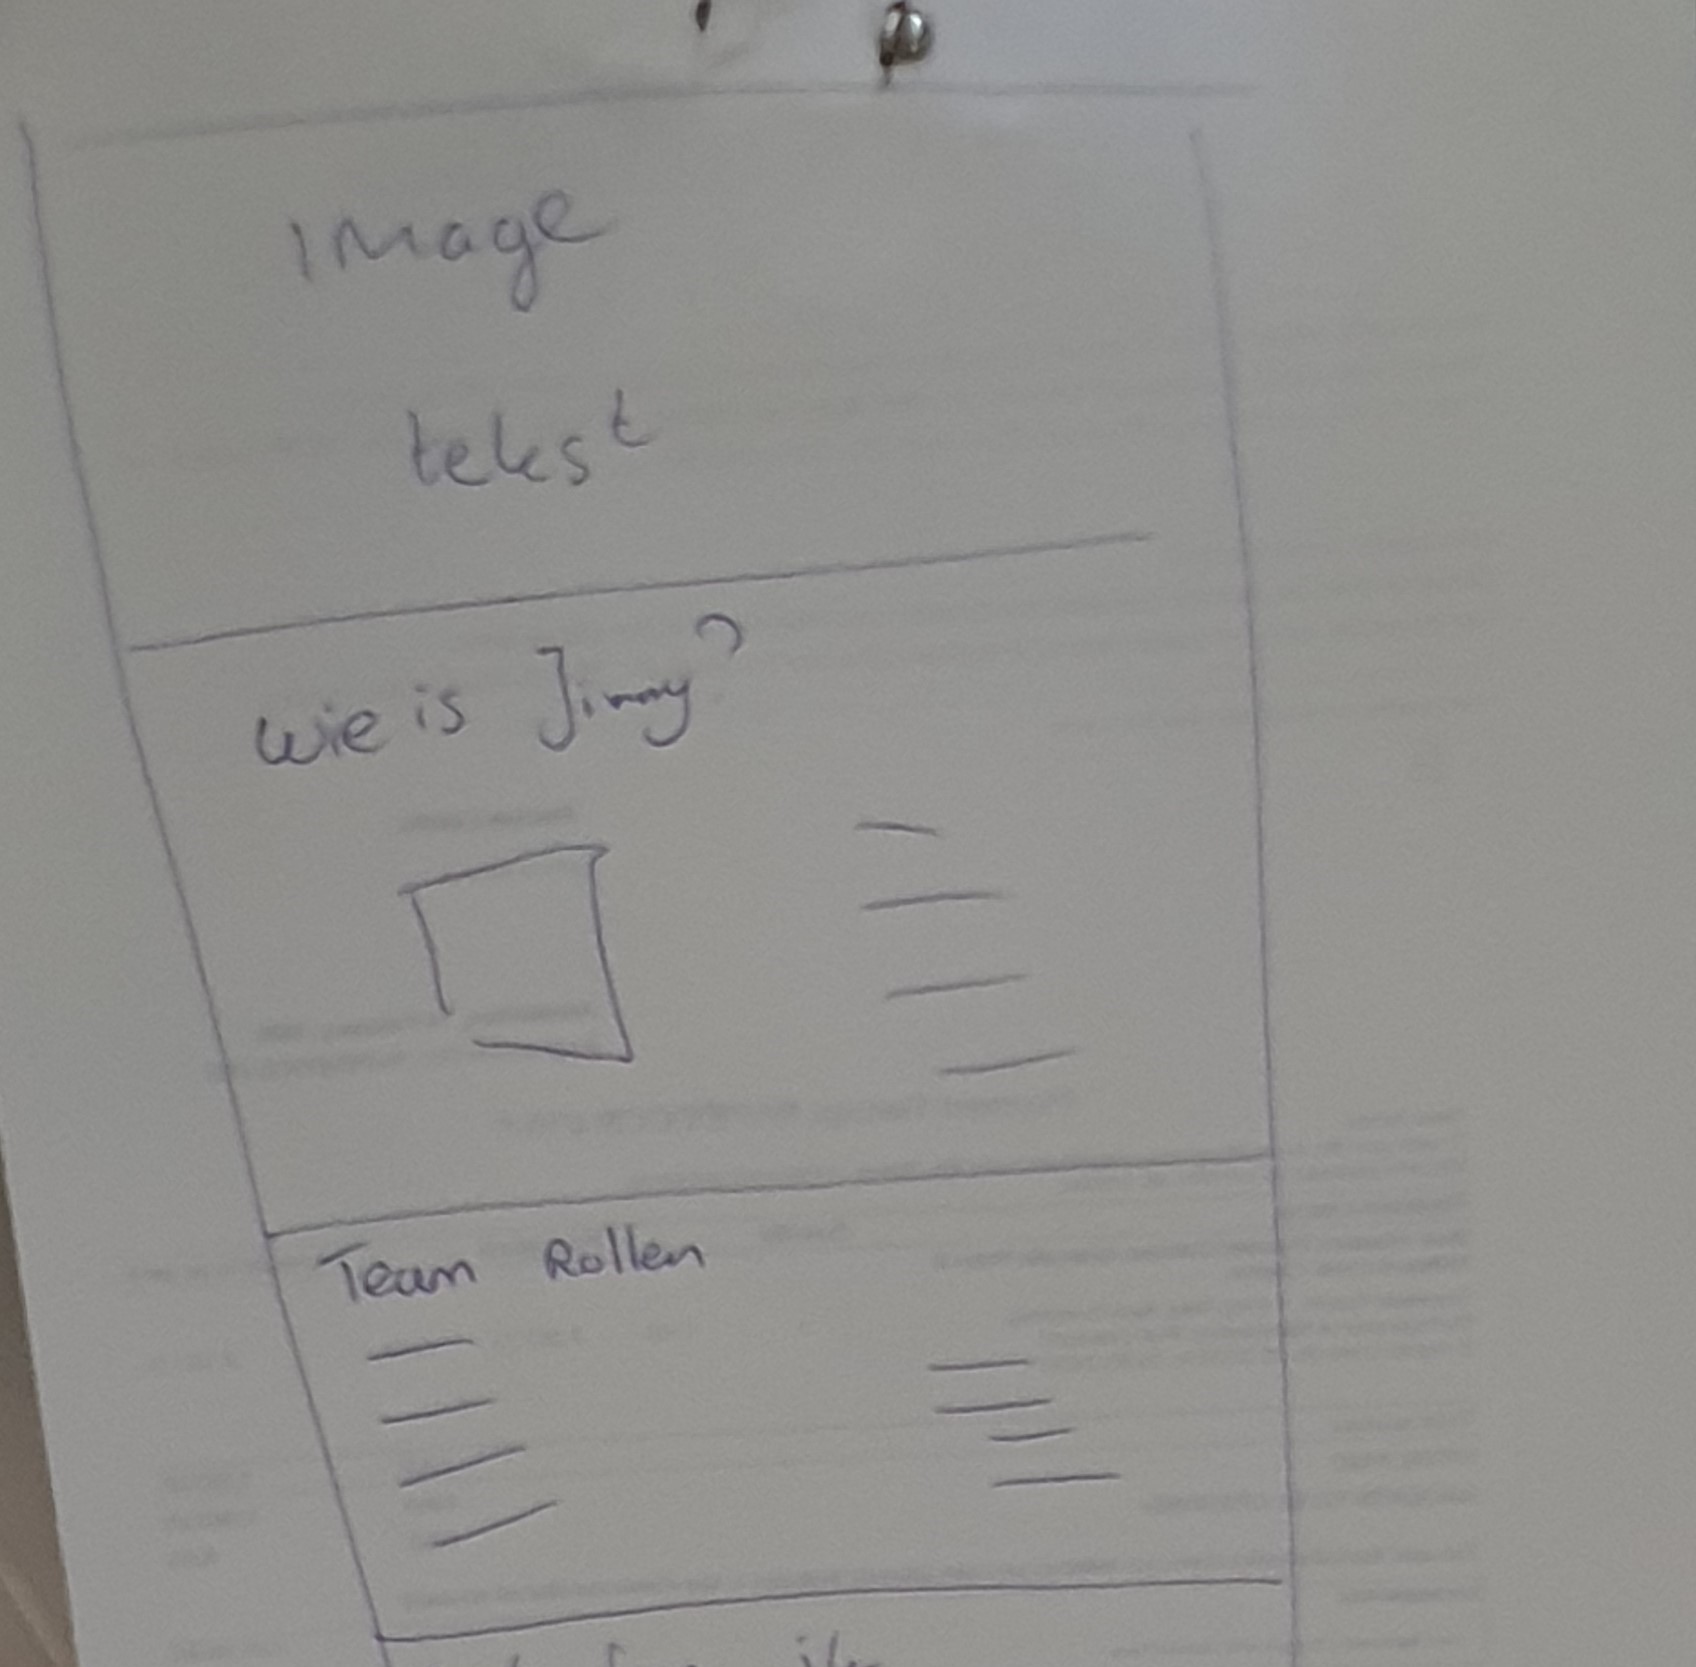 Image
tekst
wie is Jimmy?
Team Rollen